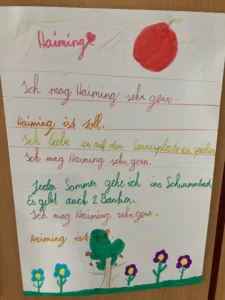 Haiming
Ich mag Haiming sehr gern.
Haiming ist toll.
Ich liebe es auf dem Tennisplatz zu spielen.
Ich mag Haiming sehr gern.
Jeden Sommer gehe ich ins Schwimmbad.
Es gibt auch 2 Banken.
Ich mag Haiming sehr gern.
Haiming ist